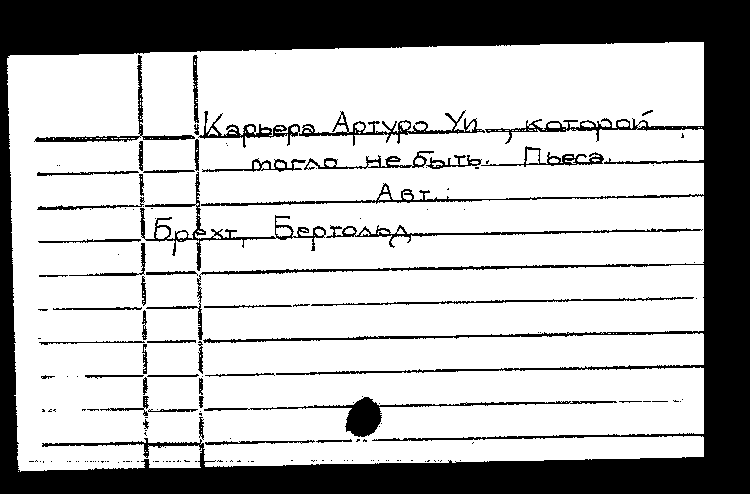 Карьера Артуро Уи, которой
могло не быть. Пьеса.
Авт.:
Брехт, Бертольд